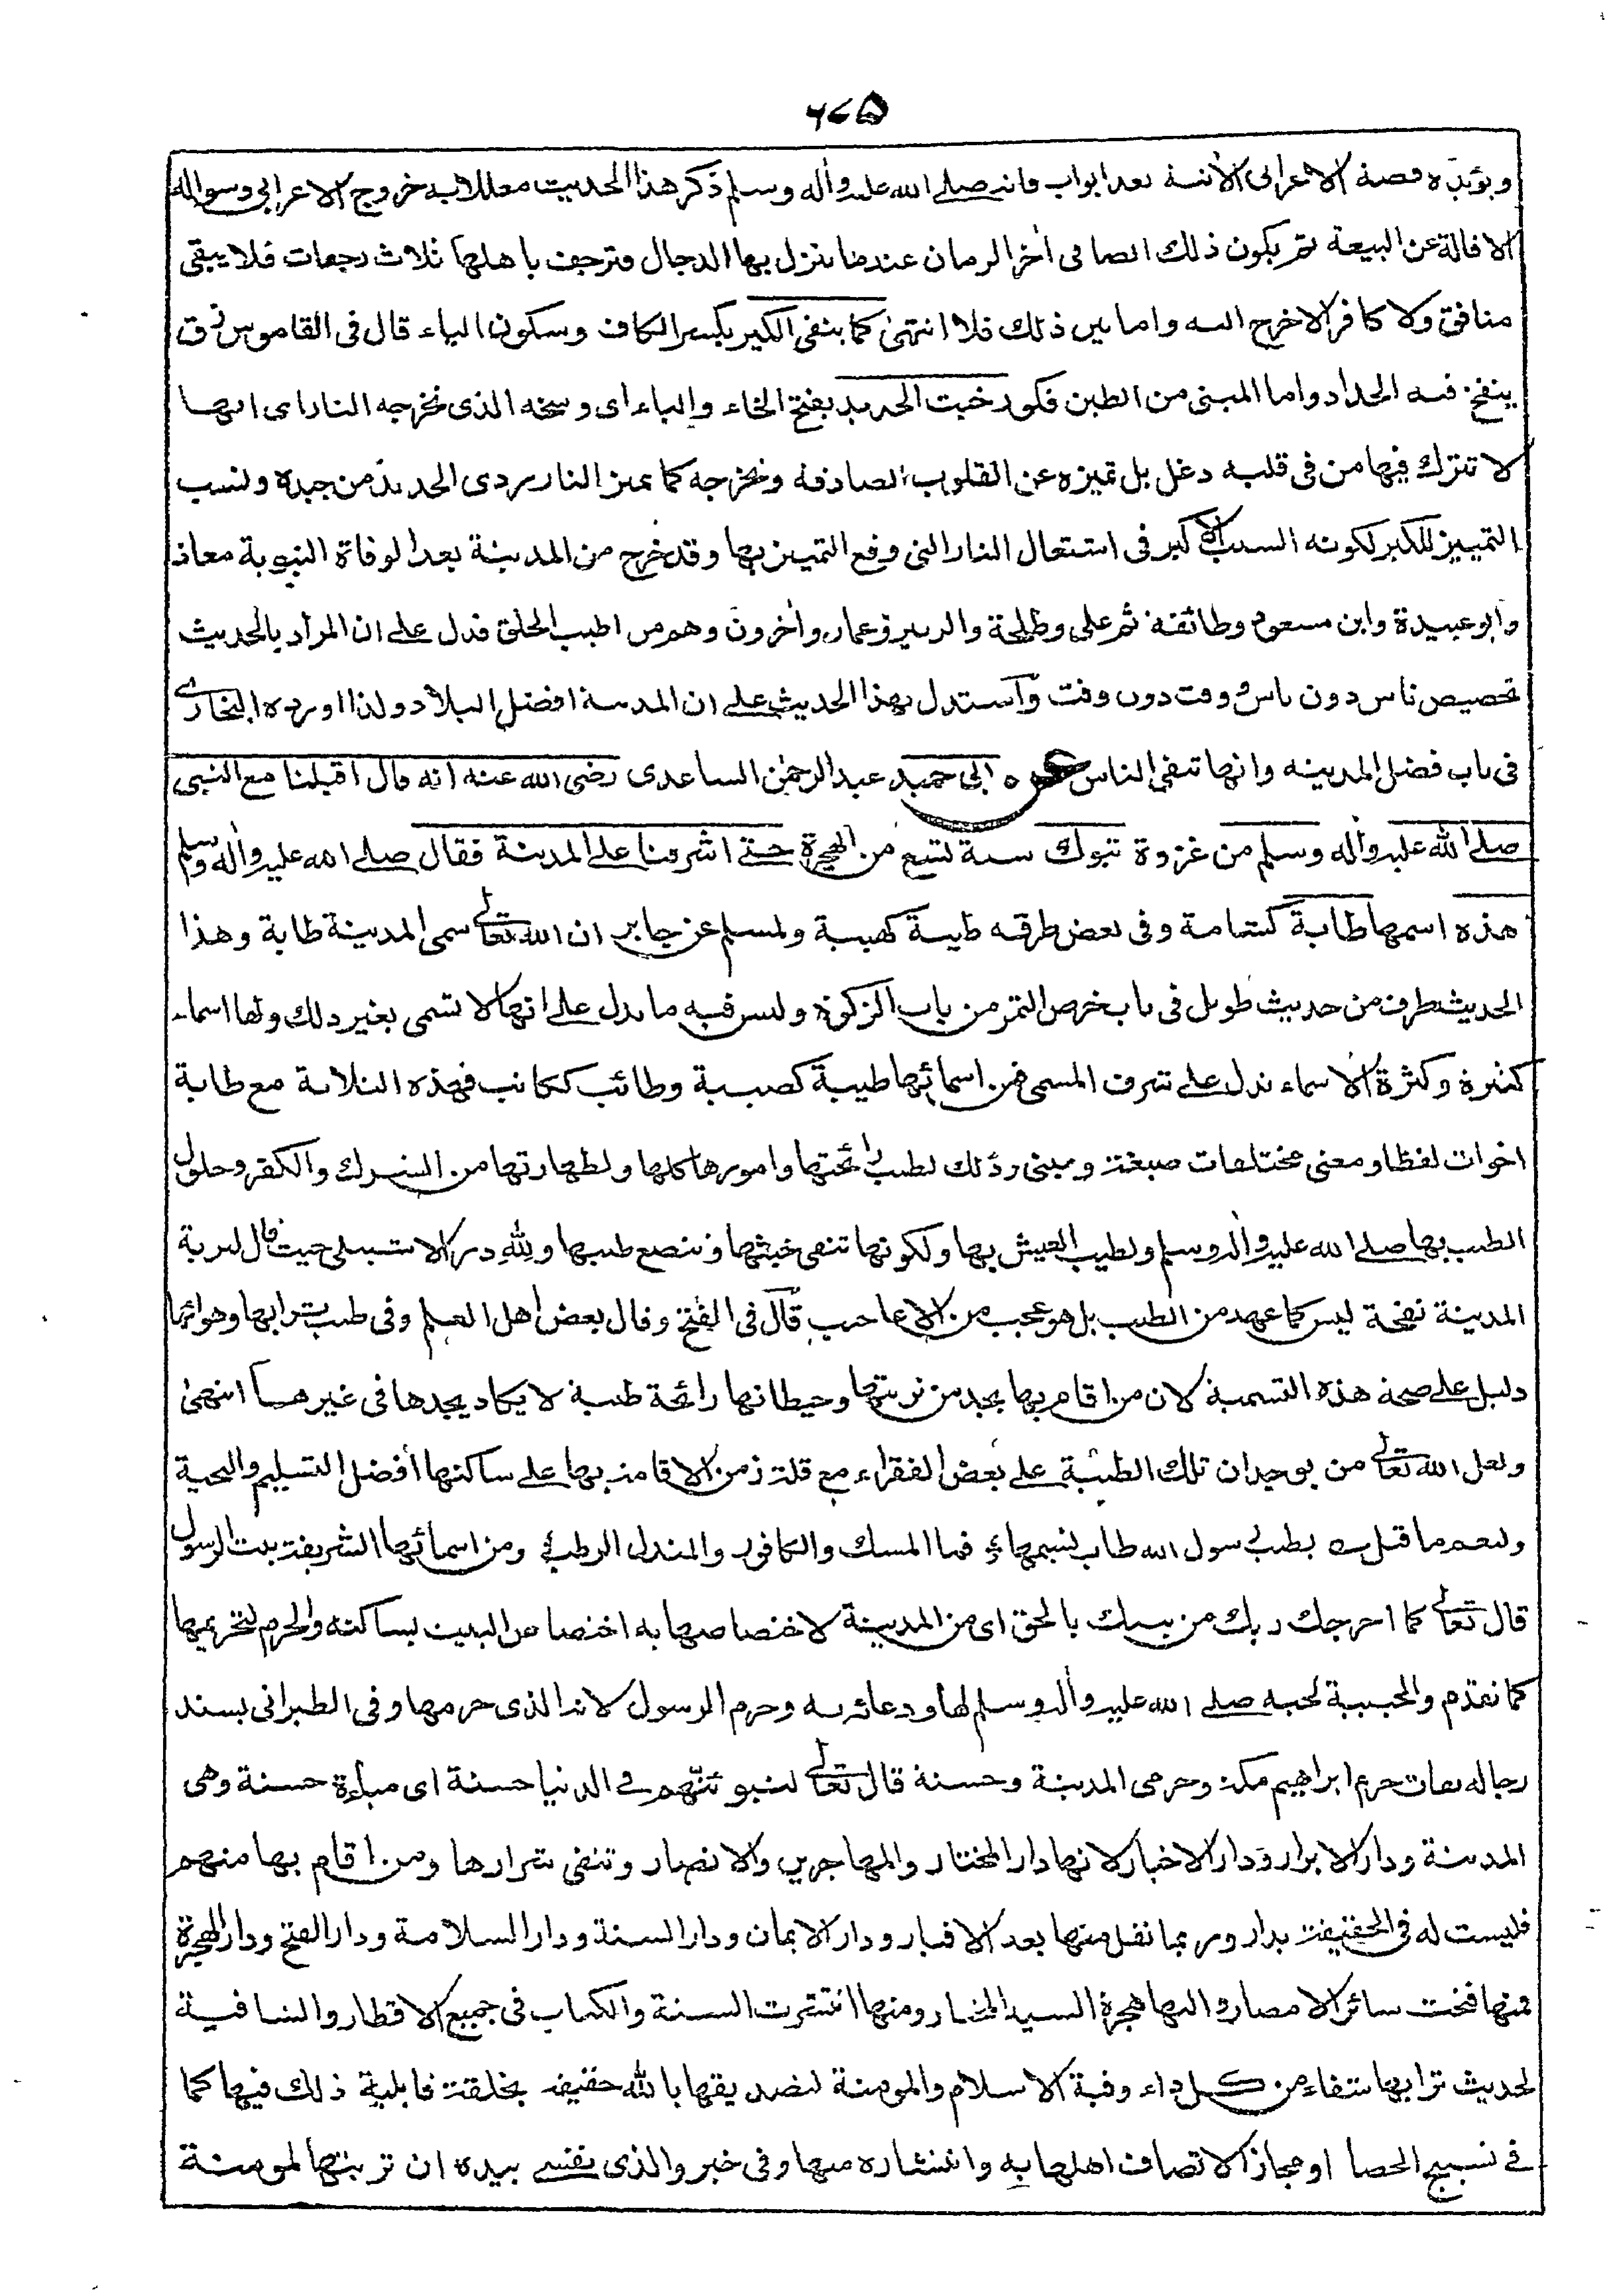 ٦٧٥
ويؤيده قصة الاعرابى الاتية بعد ابواب فانه صلى الله عليه واله وسلم ذكر هذا الحديث معللا به خروج الاعرابى وسواله
الاقالة عن البيعة ثم يكون ذلك ايضا فى اخر الزمان عندما ينزل بها الدجال فترجف باهلها ثلاث رجفات فلا يبقى
منافق ولا كافر الا خرج اليه واما بين ذلك فلا انتهى كما ينفى الكير بكسر الكاف وسكون الياء قال فى القاموس زق
ينفخ فيه الحداد واما المبنى من الطين فكور خبث الحديد بفتح الخاء والباء اى وسخه الذى تخرجه النار اى انها
لا تترك فيها من فى قلبه دغل بل تميزه عن القلوب الصادقة وتخرجه كما يميز النار ردى الحديد من جيده ونسب
التمييز للكير لكونه السبب الاكبر فى اشتعال النار التى وقع التمييز بها وقد خرج من المدينة بعد الوفاة النبوية معاذ
وابو عبيدة وابن مسعود وطائفة ثم على وطلحة والزبير وعمار واخرون وهم من اطيب الخلق فدل على ان المراد بالحديث
تخصيص ناس دون ناس ووقت دون وقت واستدل بهذا الحديث على ان المدينة افضل البلاد ولذا اورده البخارى
فى باب فضل المدينه وانها تنفى الناس عن ابى حميد عبد الرحمن الساعدى رضى الله عنه انه قال اقبلنا مع النبى
صلى الله عليه واله وسلم من غزوة تبوك سنة تسع من الهجرة حتى اشرفنا على المدينة فقال صلى الله عليه واله وسلم
هذه اسمها طابة كشامة وفى بعض طرقه طيبة كهيبة ولمسلم عن جابر ان الله تعالى سمى المدينة طابة وهذا
الحديث طرف من حديث طويل فى باب خرص التمر من باب الزكوة وليس فيه ما يدل على انها لا تسمى بغير ذلك ولها اسماء
كثيرة وكثرة الاسماء تدل على شرف المسمى فمن اسمائها طيبة كصيبة وطائب ككاتب فهذه الثلاثة مع طابة
اخوات لفظا ومعنى مختلفات صيغة ومبنى وذلك لطيب رائحتها وامورها كلها ولطهارتها من الشرك والكفر وحلول
الطيب بها صلى الله عليه واله وسلم ولطيب العيش بها ولكونها تنفى خبثها وتنصع طيبها ولله در الاشبيلى حيث قال لتربة
المدينة نفحة ليس كما عهد من الطيب بل هو عجب من الاعاجيب قال فى الفتح وقال بعض اهل العلم وفى طيب ترابها وهوائها
دليل على صحة هذه التسمية لان من اقام بها يجد من تربتها وحيطانها رائحة طيبة لا يكاد يجدها فى غيرها انتهى
ولعل الله تعالى من بوجدان تلك الطيبة على بعض الفقراء مع قلة زمن الاقامة بها على ساكنها افضل التسليم والتحية
ولنعم ما قيل بطيب رسول الله طاب نسيمها فما المسك والكافور والمندل الرطب ومن اسمائها الشريفة بيت الرسول
قال تعالى كما اخرجك ربك من بيتك بالحق اى من المدينة لاختصاصها به اختصاص البيت بساكنه والحرم لتحريمها
كما تقدم والحبيبة لحبه صلى الله عليه واله وسلم لها ودعائه به وحرم الرسول لانه الذى حرمها وفى الطبرانى بسند
رجاله ثقات حرم ابراهيم مكة وحرمى المدينة وحسنة قال تعالى لنبوئنهم فى الدنيا حسنة اى مباءة حسنة وهى
المدينة ودار الابرار ودار الاخيار لانها دار المختار والمهاجرين والانصار وتنفى شرارها ومن اقام بها منهم
فليست له فى الحقيقة بدار وربما نقل منها بعد الاقبار ودار الايمان ودار السنة ودار السلامة ودار الفتح ودار الهجرة
فمنها فتحت سائر الامصار واليها هجرة السيد المختار ومنها انتشرت السنة والكتاب فى جميع الاقطار والشافية
لحديث ترابها شفاء من كل داء وقبة الاسلام والمومنة لتصديقها بالله حقيقة بخلقه قابلية ذلك فيها كما
فى تسبيح الحصا او مجازا لاتصاف اهلها به وانتشاره منها وفى خبر والذى نفسى بيده ان تربتها لمومنة